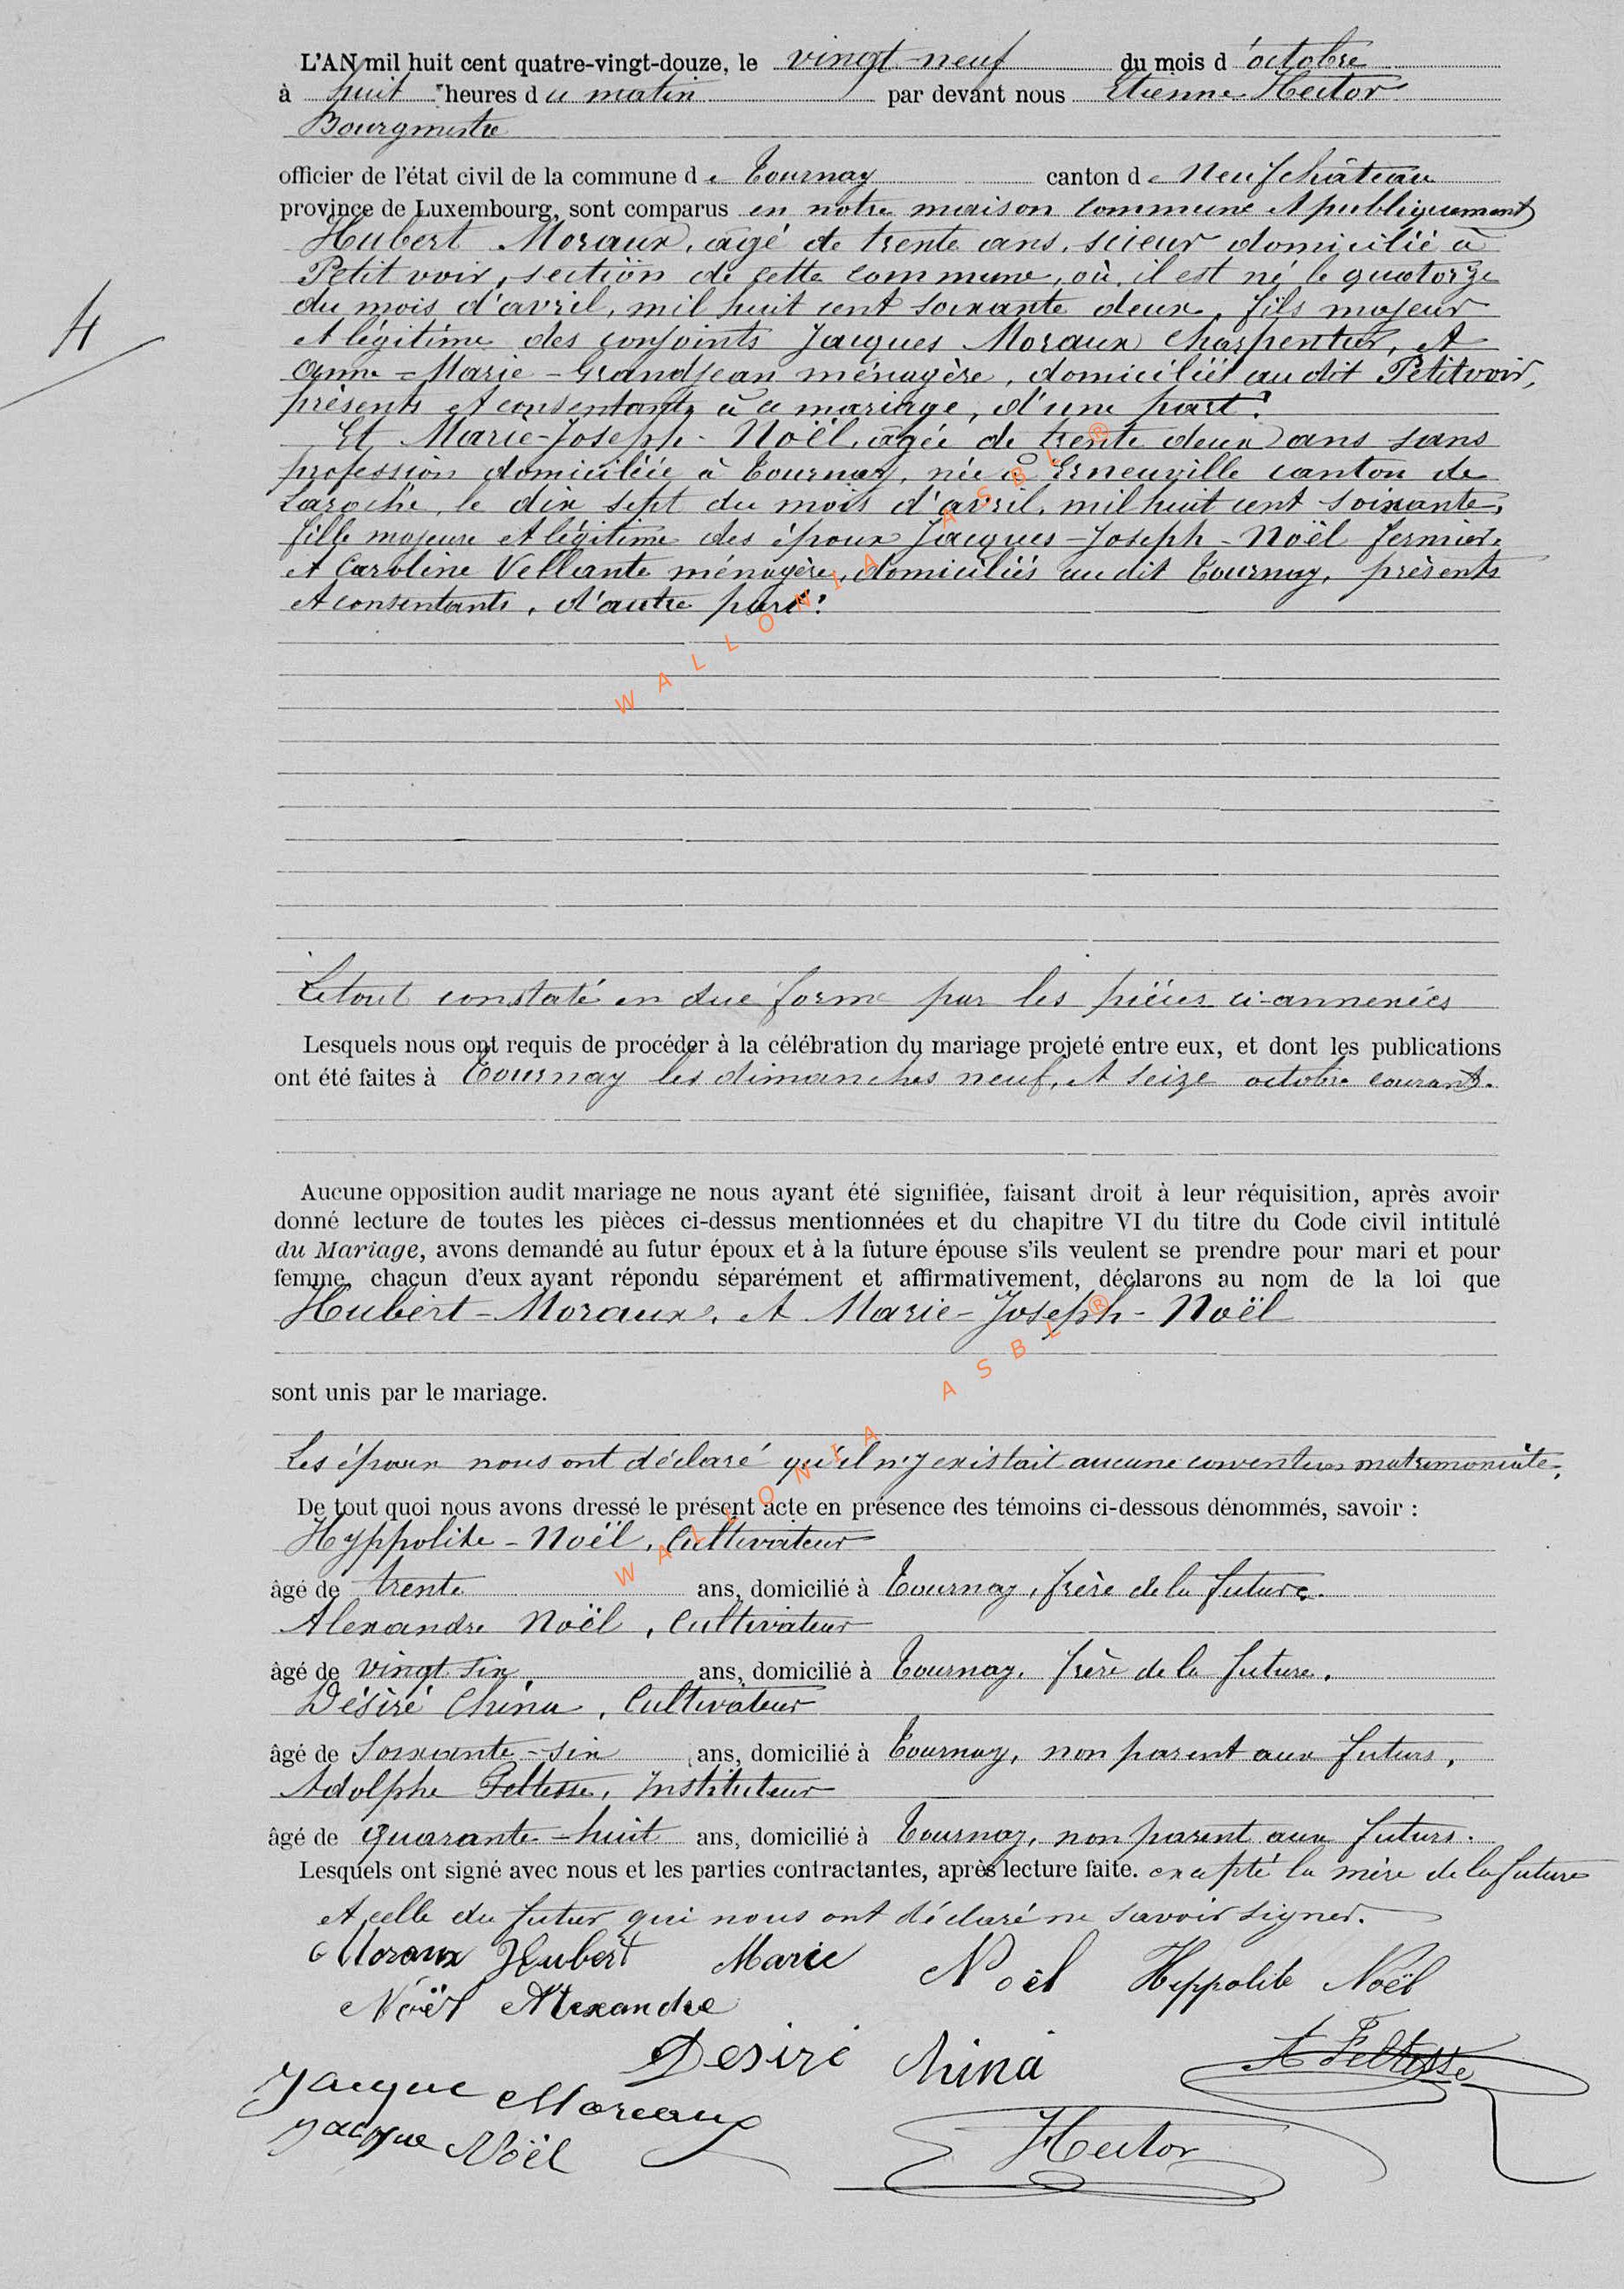 L'AN mil huit cent quatre-vingt-douze, le vingt-neuf du mois d'octobre
à huit heures du matin par devant nous Etienne Hector
Bourgmestre
officier de l'état civil de la commune de Tournay canton de Neufchâteau
province de Luxembourg, sont comparus en notre maison commune et publiquement
Hubert Moraux, âgé de trente ans, scieur domicilié à
Petitvoir, section de cette commune, où il est né le quatorze
du mois d'avril, mil huit cent soixante deux, fils majeur
et légitime des conjoints Jacques Moraux charpentier, et
Anne-Marie-Grandjean ménagère, domiciliés au dit Petitvoir,
présents et consentants à ce mariage, d'une part:
Et Marie-Joseph-Noël, âgée de trente deux ans sans
profession domiciliée à Tournay, née à Erneuville canton de
Laroche, le dix sept du mois d'avril, mil huit cent soixante,
fille majeure et légitime des époux Jacques-Joseph-Noël fermier
et Caroline Vellante ménagère, domiciliés au dit Tournay, présents
et consentants, d'autre part:
4
Le tout constaté en due forme par les pièces ci-annexées
Lesquels nous ont requis de procéder à la célébration du mariage projeté entre eux, et dont les publications
ont été faites à Tournay les dimanches neuf, et seize octobre courant.
Aucune opposition audit mariage ne nous ayant été signifiée, faisant droit à leur réquisition, après avoir
donné lecture de toutes les pièces ci-dessus mentionnées et du chapitre VI du titre du Code civil intitulé
du Mariage, avons demandé au futur époux et à la future épouse s'ils veulent se prendre pour mari et pour
femme, chacun d'eux ayant répondu séparément et affirmativement, déclarons au nom de la loi que
Hubert-Moraux, et Marie-Joseph-Noël
sont unis par le mariage.
Les époux nous ont déclaré qu'il n'y existait aucune convention matrimoniale.
De tout quoi nous avons dressé le présent acte en présence des témoins ci-dessous dénommés, savoir :
Hyppolite-Noël, Cultivateur
âgé de trente ans, domicilié à Tournay, frère de la future.
Alexandre Noël, Cultivateur
âgé de vingt six ans, domicilié à Tournay, frère de la future.
Désiré China, Cultivateur
âgé de soixante-six ans, domicilié à Tournay, non parent aux futurs,
Adolphe Feltesse, Instituteur
âgé de quarante-huit ans, domicilié à Tournay, non parent aux futurs.
Lesquels ont signé avec nous et les parties contractantes, après lecture faite. excepté la mère de la future
et celle du futur qui nous ont déclaré ne savoir signer.
Moraux Hubert Marie Noël Hippolite Noël
Noël Alexandre
Desire China A Feltesse
Jacque Moreaux
Jacque Noël Hector
WALLONIA ASBL ®
WALLONIA ASBL ®